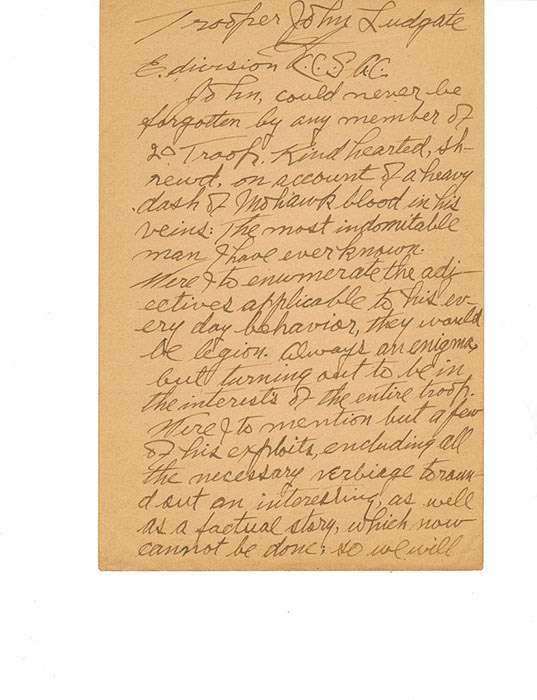 Trooper John Ludgate
E. division S.A.C.
John, could never be
forgotten by any member of
20 Troop. Kind hearted, sh-
rewd, on account of a heavy
dash of Mohawk blood in his
veins: The most indomitable
man I have ever known.
Were I to enumerate the adj-
ectives applicable to his ev-
ery day behavior, they would
be legion. Always an enigma,
but turning out to be in
the interests of the entire troop.
Were I to mention but a few
of his exploits, encluding all
the necessary verbiage to roun-
d out an interesting, as well
as a factual story, which now
cannot be done; so we will